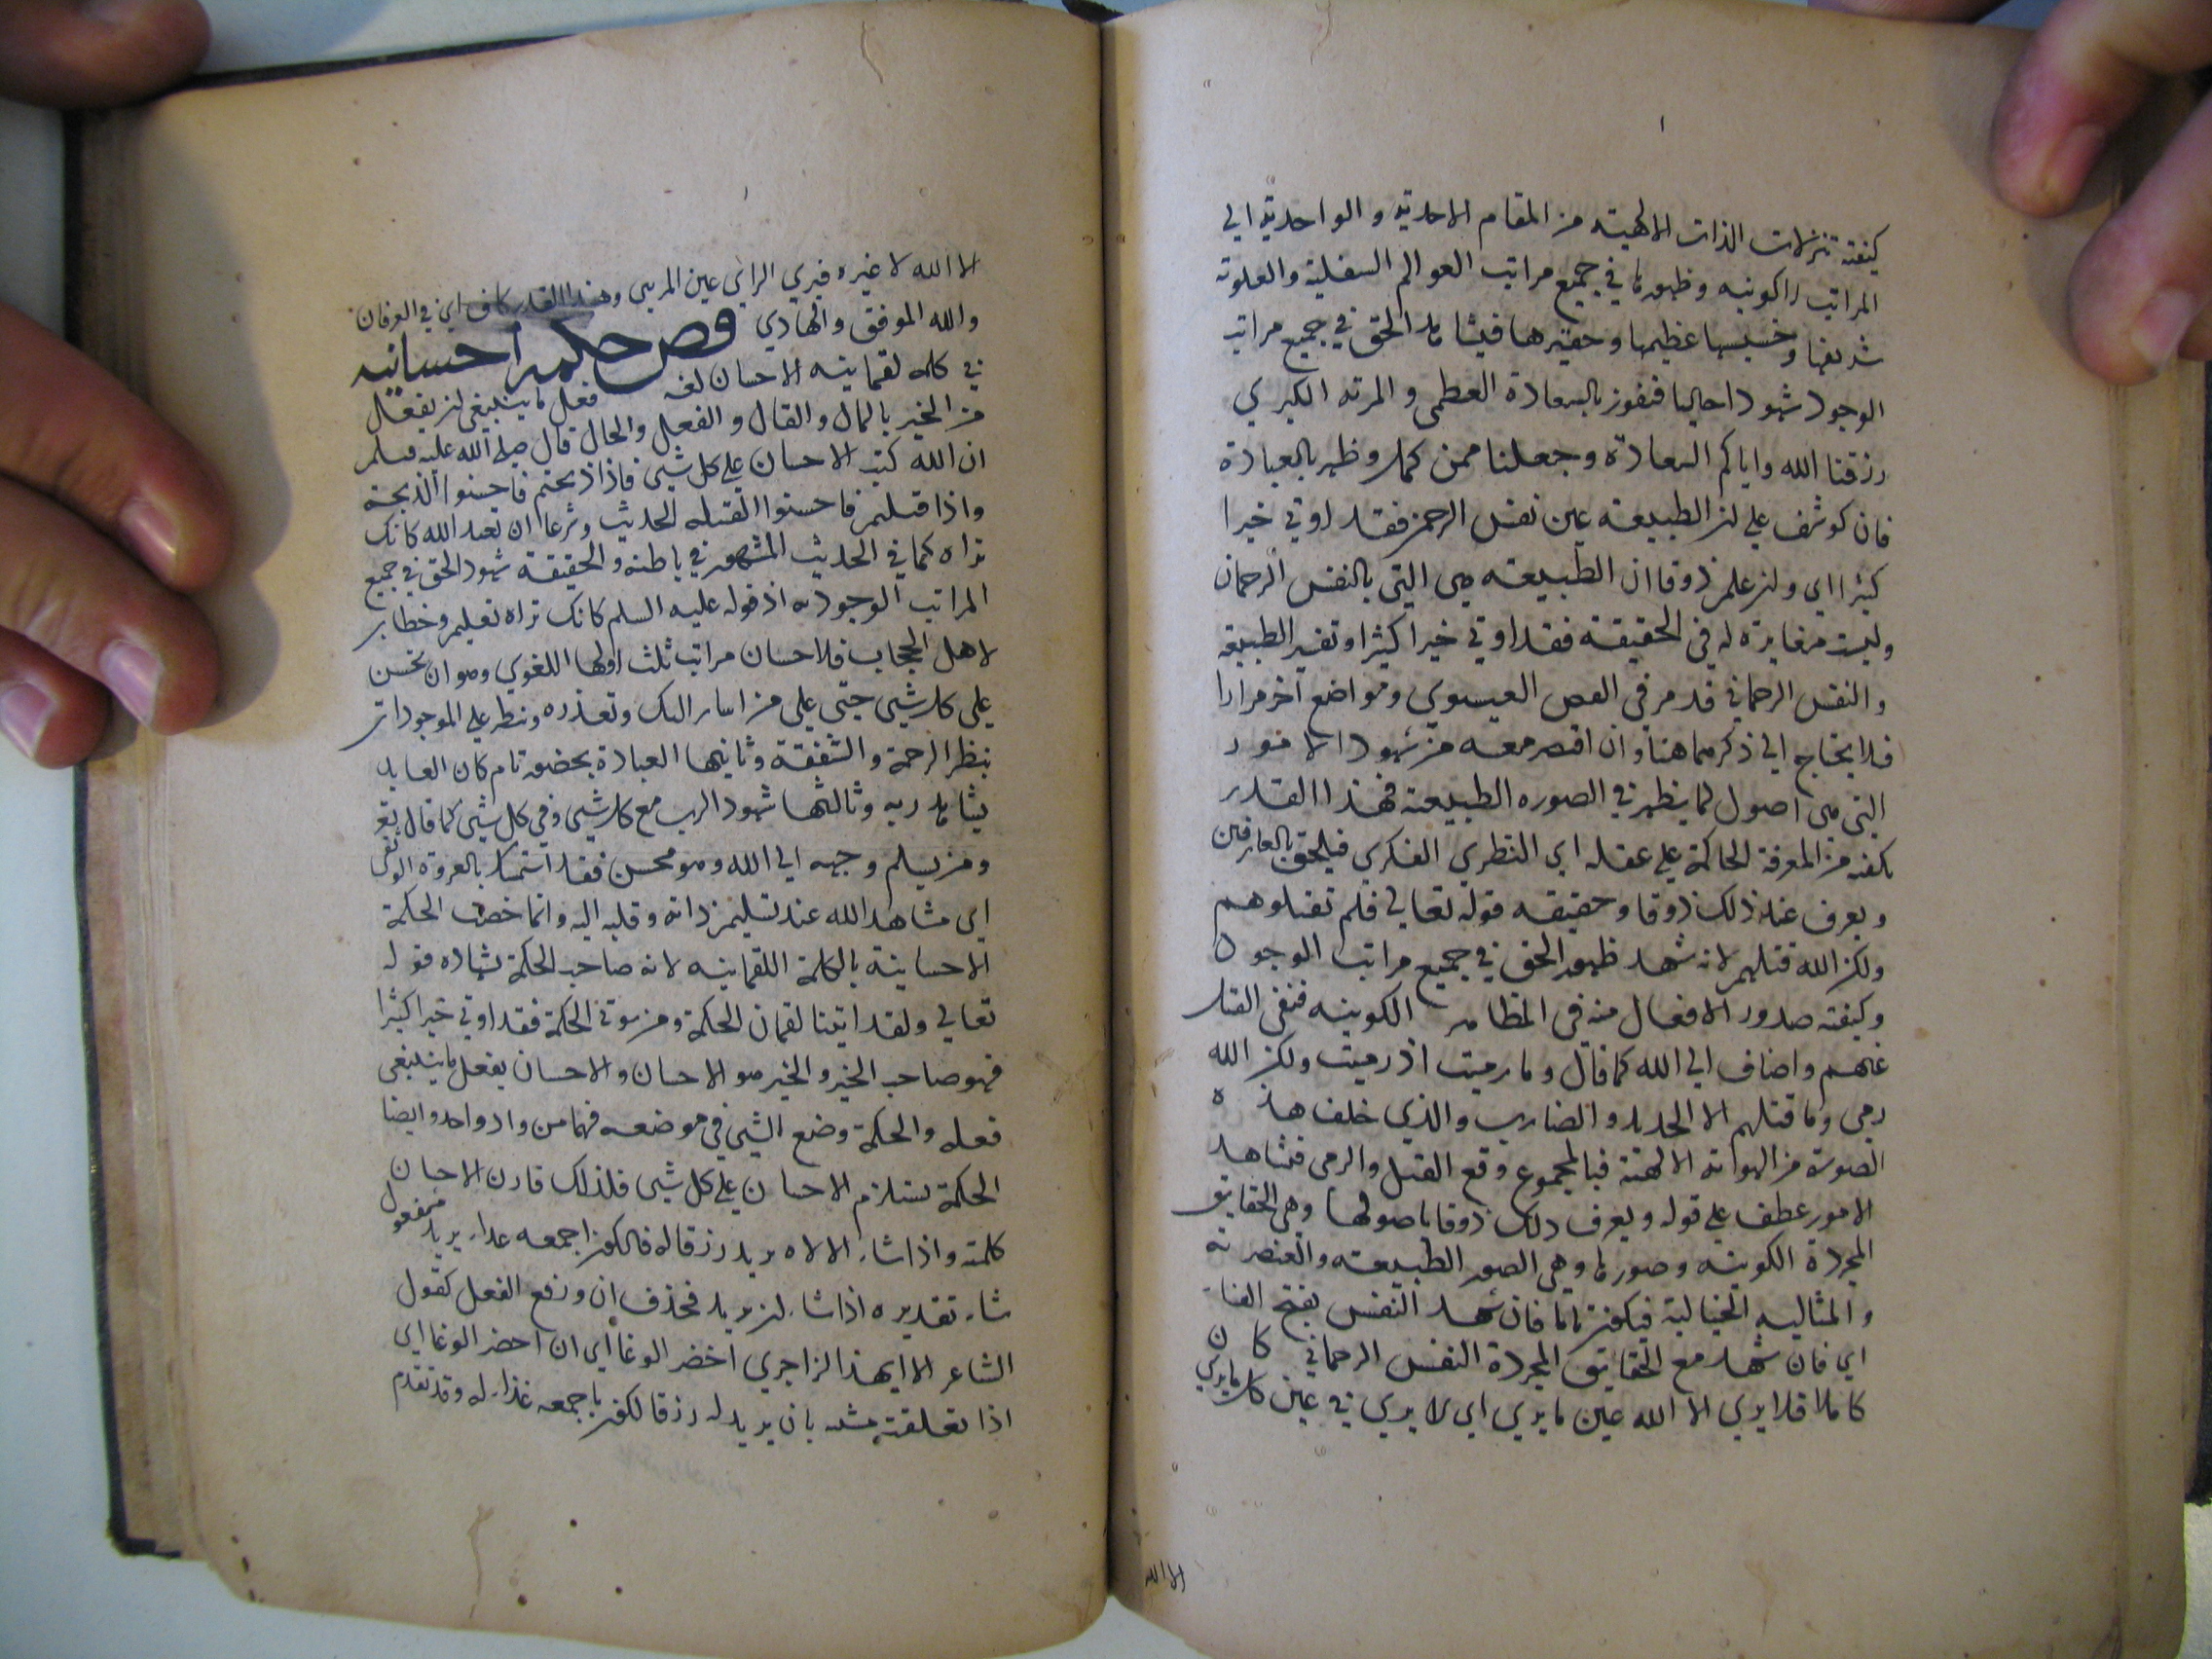 كيفية تنزلات الذات الالهية من المقام الاحدية و الواحدية الى
المراتب الكونيه وظهورها في جميع مراتب العوالم السفلية والعلوية
شريفها وخسيسها عظيمها وحقيرها فيشاهد الحق في جميع مراتب
الوجود شهودا حاليا فنفوز بالسعادة العظمى و المرتبه الكبرى
رزقنا الله واياكم السعادة وجعلنا ممن كمل وظهر بالعبادة
فان كوشف على ان الطبيعة عين نفس الرحمن فقد اوتي خيرا
كثيرا اي وان علم ذوقا ان الطبيعة هي التي بالنفس الرحمان
وليست مغايرة له في الحقيقة فقد اوتي خيرا كثيرا وتفسير الطبيعة
و النفس الرحماني قد مر في الفص العيسوي ومواضع آخر مرارا
فلا يحتاج الى ذكرهما هنا وان اقتصر معه من شهود الامور
التي هي اصول لما يظهر في الصوره الطبيعة فهذا القدر
يكفيه من المعرفة الحاكمة على عقله اي النظري الفكري فيلحق بالعارفين
ويعرف عند ذلك ذوقا وحقيقه قوله تعالى فلم تقتلوهم
ولكن الله قتلهم لانه شهد ظهور الحق في جميع مراتب الوجود
وكيفية صدور الافعال منه في المظاهر الكونيه فنفى القتل
عنهم واضاف الى الله كما قال وما رميت اذ رميت ولكن الله
رمى وما قتلهم الا الحديد و الضارب والذي خلف هذه
الصورة من الهواية الالهية فبالمجموع وقع القتل والرمى فيشاهد
الامور عطف على قوله ويعرف ذلك ذوقا باصولها وهي الحقايق
المجردة الكونية وصورها وهي الصور الطبيعية والعنصرية
و المثاليه الخيالية فيكون تاما فان شهد النفس بفتح الفاء
اي فان شهد مع الحقايق المجردة النفس الرحماني كان
كاملا فلا يرى الا الله عين ما يرى اي لا يرى في عين كل ما يرى
الا الله
الا الله لا غيره فيرى الرائى عين المرئى وهذا القدر كاف اي في العرفان
والله الموفق والهادي فص حكمة احسانيه
في كلمه لقمانيه الاحسان لغه فعل ما ينبغي ان يفعل
من الخير بالمال و القال و الفعل والحال قال صلى الله عليه وسلم
ان الله كتب الاحسان على كل شيئ فاذا ذبحتم فاحسنوا الذبحة
واذا قتلتم فاحسنوا القتله الحديث وشرعا ان تعبد الله كانك
تراه كما في الحديث المشهور في باطنه والحقيقة شهود الحق في جميع
المراتب الوجوديه اذ قوله عليه السلم كانك تراه تعليم وخطاب
لاهل الحجاب فلاحسان مراتب ثلث اولها اللغوي وهو ان تحسن
على كل شيئ حتى على من اساء اليك وتعذره وتنظر على الموجودات
بنظر الرحمة و الشفقة وثانيها العبادة بحضور تام كان العابد
يشاهد ربه وثالثها شهود الرب مع كل شيئ وفي كل شيئ كما قال تع
ومن يسلم وجهه الى الله وهو محسن فقد استمسك بالعروة الوثقى
اي مشاهد الله عند تسليم ذاته وقلبه اليه وانما خصت الحكمة
الاحسانية بالكلمة اللقمانيه لانه صاحب الحكمة بشهاده قوله
تعالى ولقد اتينا لقمان الحكمة ومن يوتى الحكمة فقد اوتي خيرا كثيرا
فهو صاحب الخير و الخير هو الاحسان والاحسان بفعل ما ينبغي
فعله والحكمة وضع الشيئ في موضعه فهما من واد واحد وايضا
الحكمة يستلزم الاحسان على كل شيئ فلذلك قارن الاحسان
كلمته واذا شاء الاله يريد رزقا له فالكون اجمعه غذاء يريد مفعول
شاء تقديره اذا شاء ان يريد فحذف ان ورفع الفعل كقول
الشاعر الا ايهذا الزاجري احضر الوغا اي ان احضر الوغا اي
اذا تعلقت مشيه بان يريد له رزقا لكون باجمعه غذاء له وقد تقدم